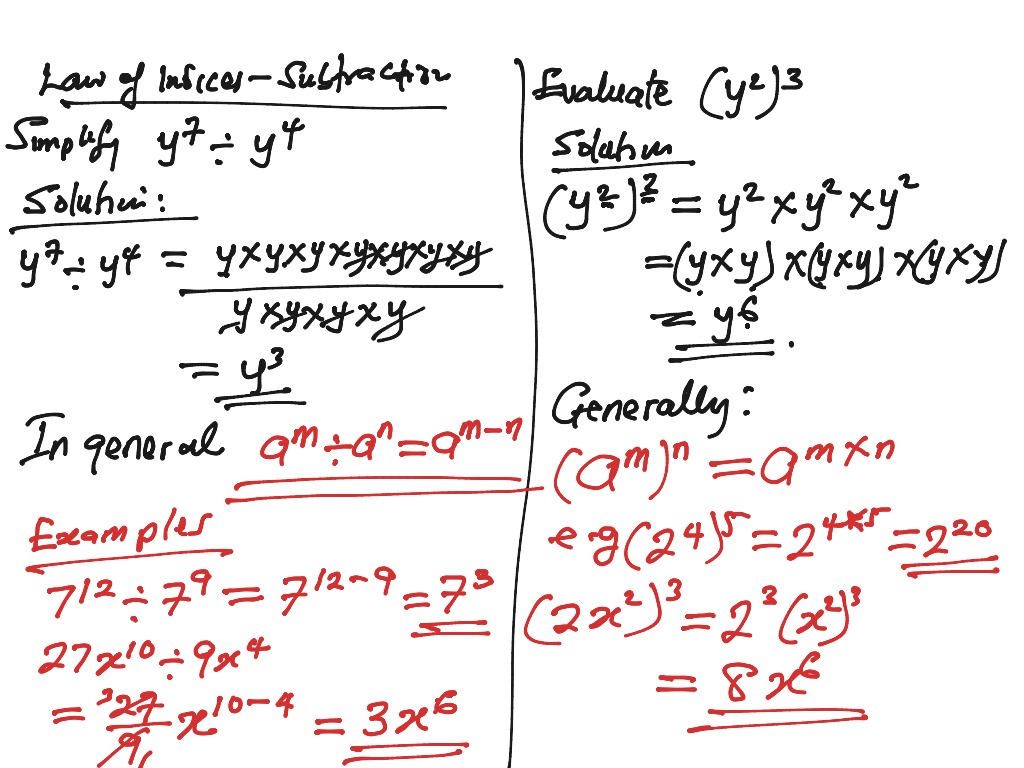 Law of Indices - Subtraction
Simplify y⁷ ÷ y⁴
Solution:
y⁷ ÷ y⁴ = y × y × y × y × y × y × y
y × y × y × y
= y³
In general aᵐ ÷ aⁿ = aᵐ⁻ⁿ
Examples
7¹² ÷ 7⁹ = 7¹²⁻⁹ = 7³
27x¹⁰ ÷ 9x⁴
= ³27/9₁ x¹⁰⁻⁴ = 3x⁶
Evaluate (y²)³
Solution
(y²)³ = y² × y² × y²
= (y × y) × (y × y) × (y × y)
= y⁶.
Generally:
(aᵐ)ⁿ = aᵐ ˣ ⁿ
e g (2⁴)⁵ = 2⁴ˣ⁵ = 2²⁰
(2x²)³ = 2³(x²)³
= 8x⁶